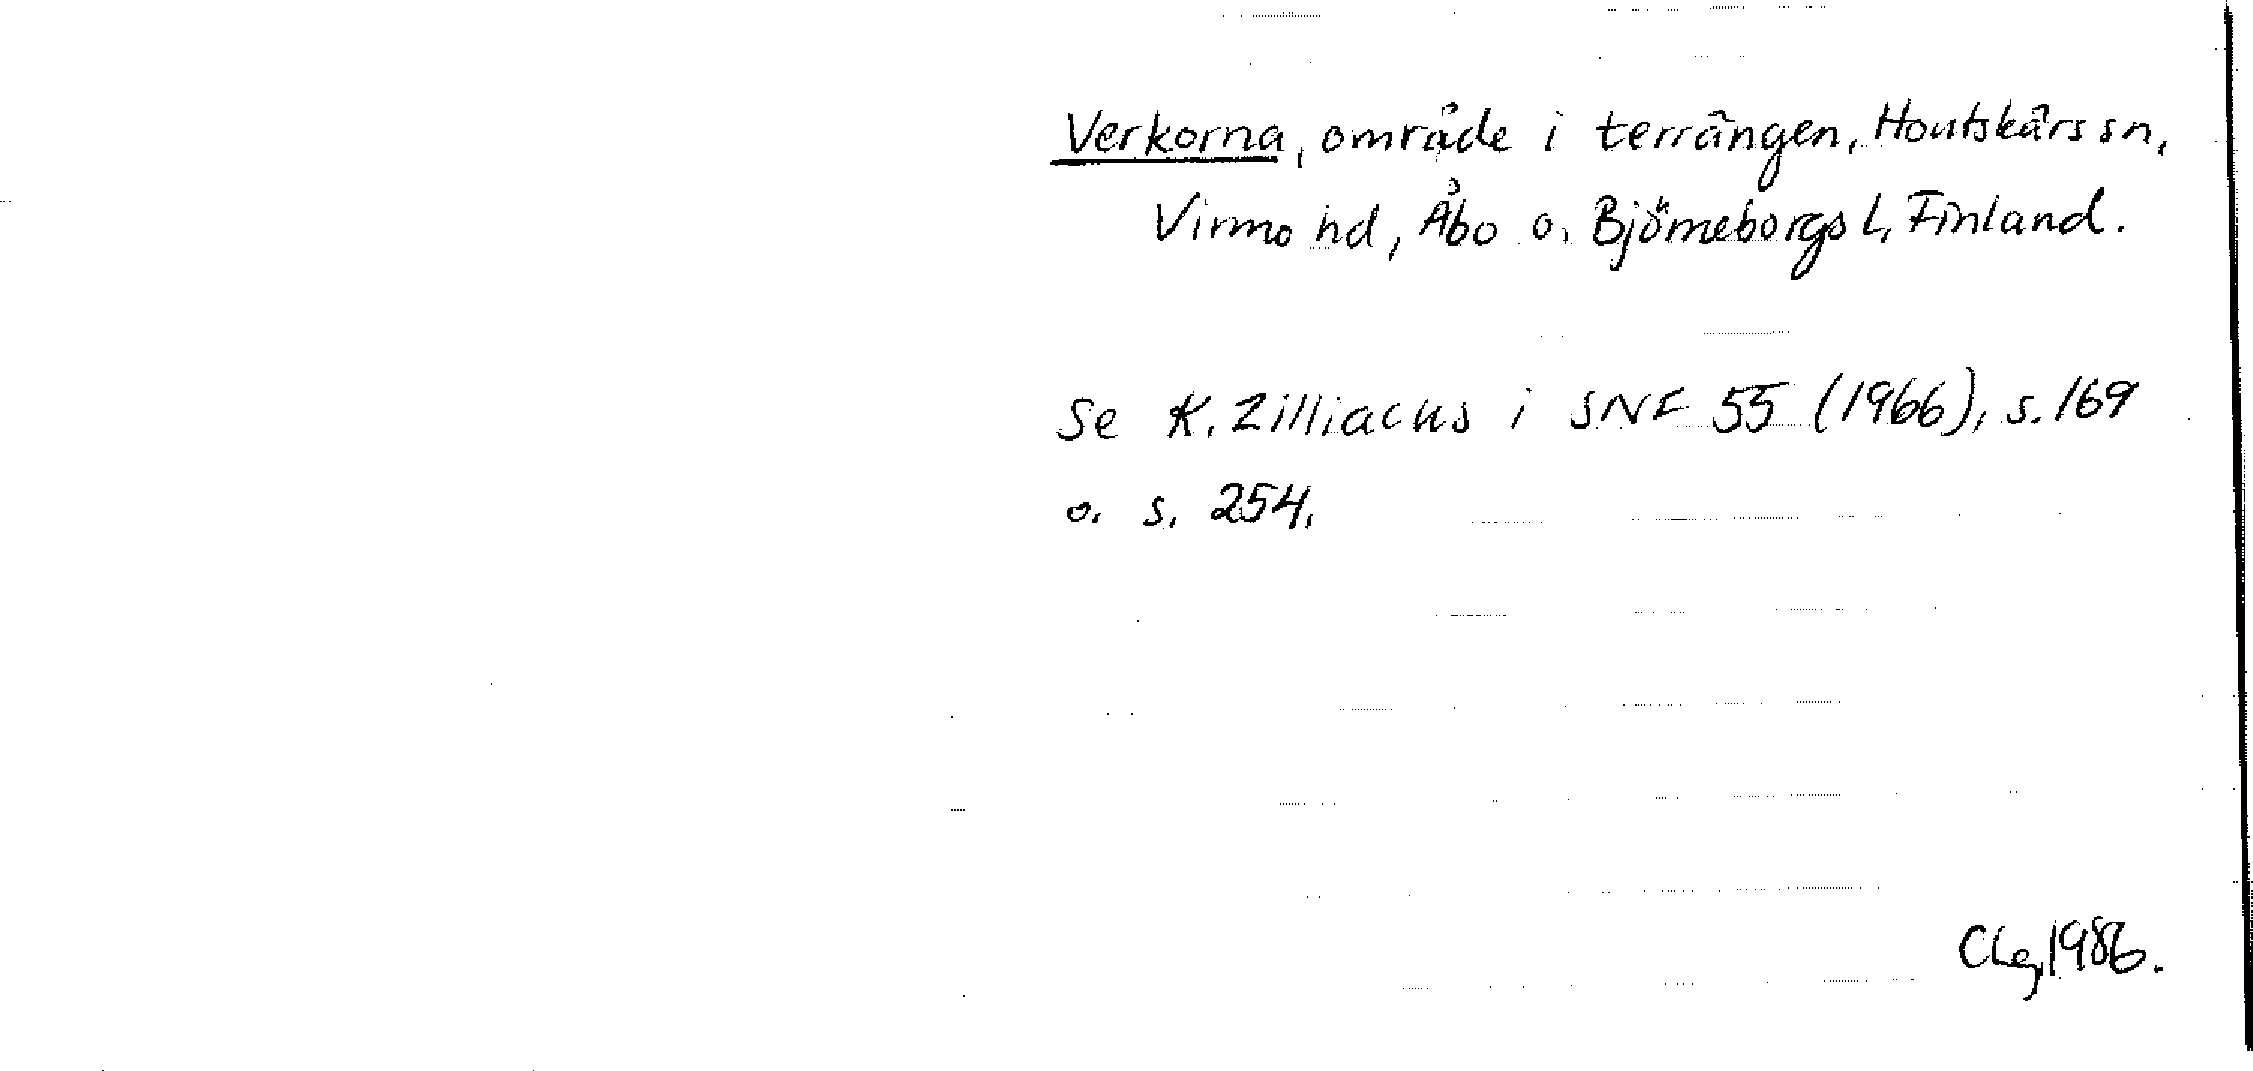 Verkorna, område i terrängen, Houtskärs sn,
Virmo hd, Åbo o. Björneborgs l, Finland.
Se K. Zilliacus i SNF 55 (1966), s. 169
o. s. 254.
CLg, 1986.